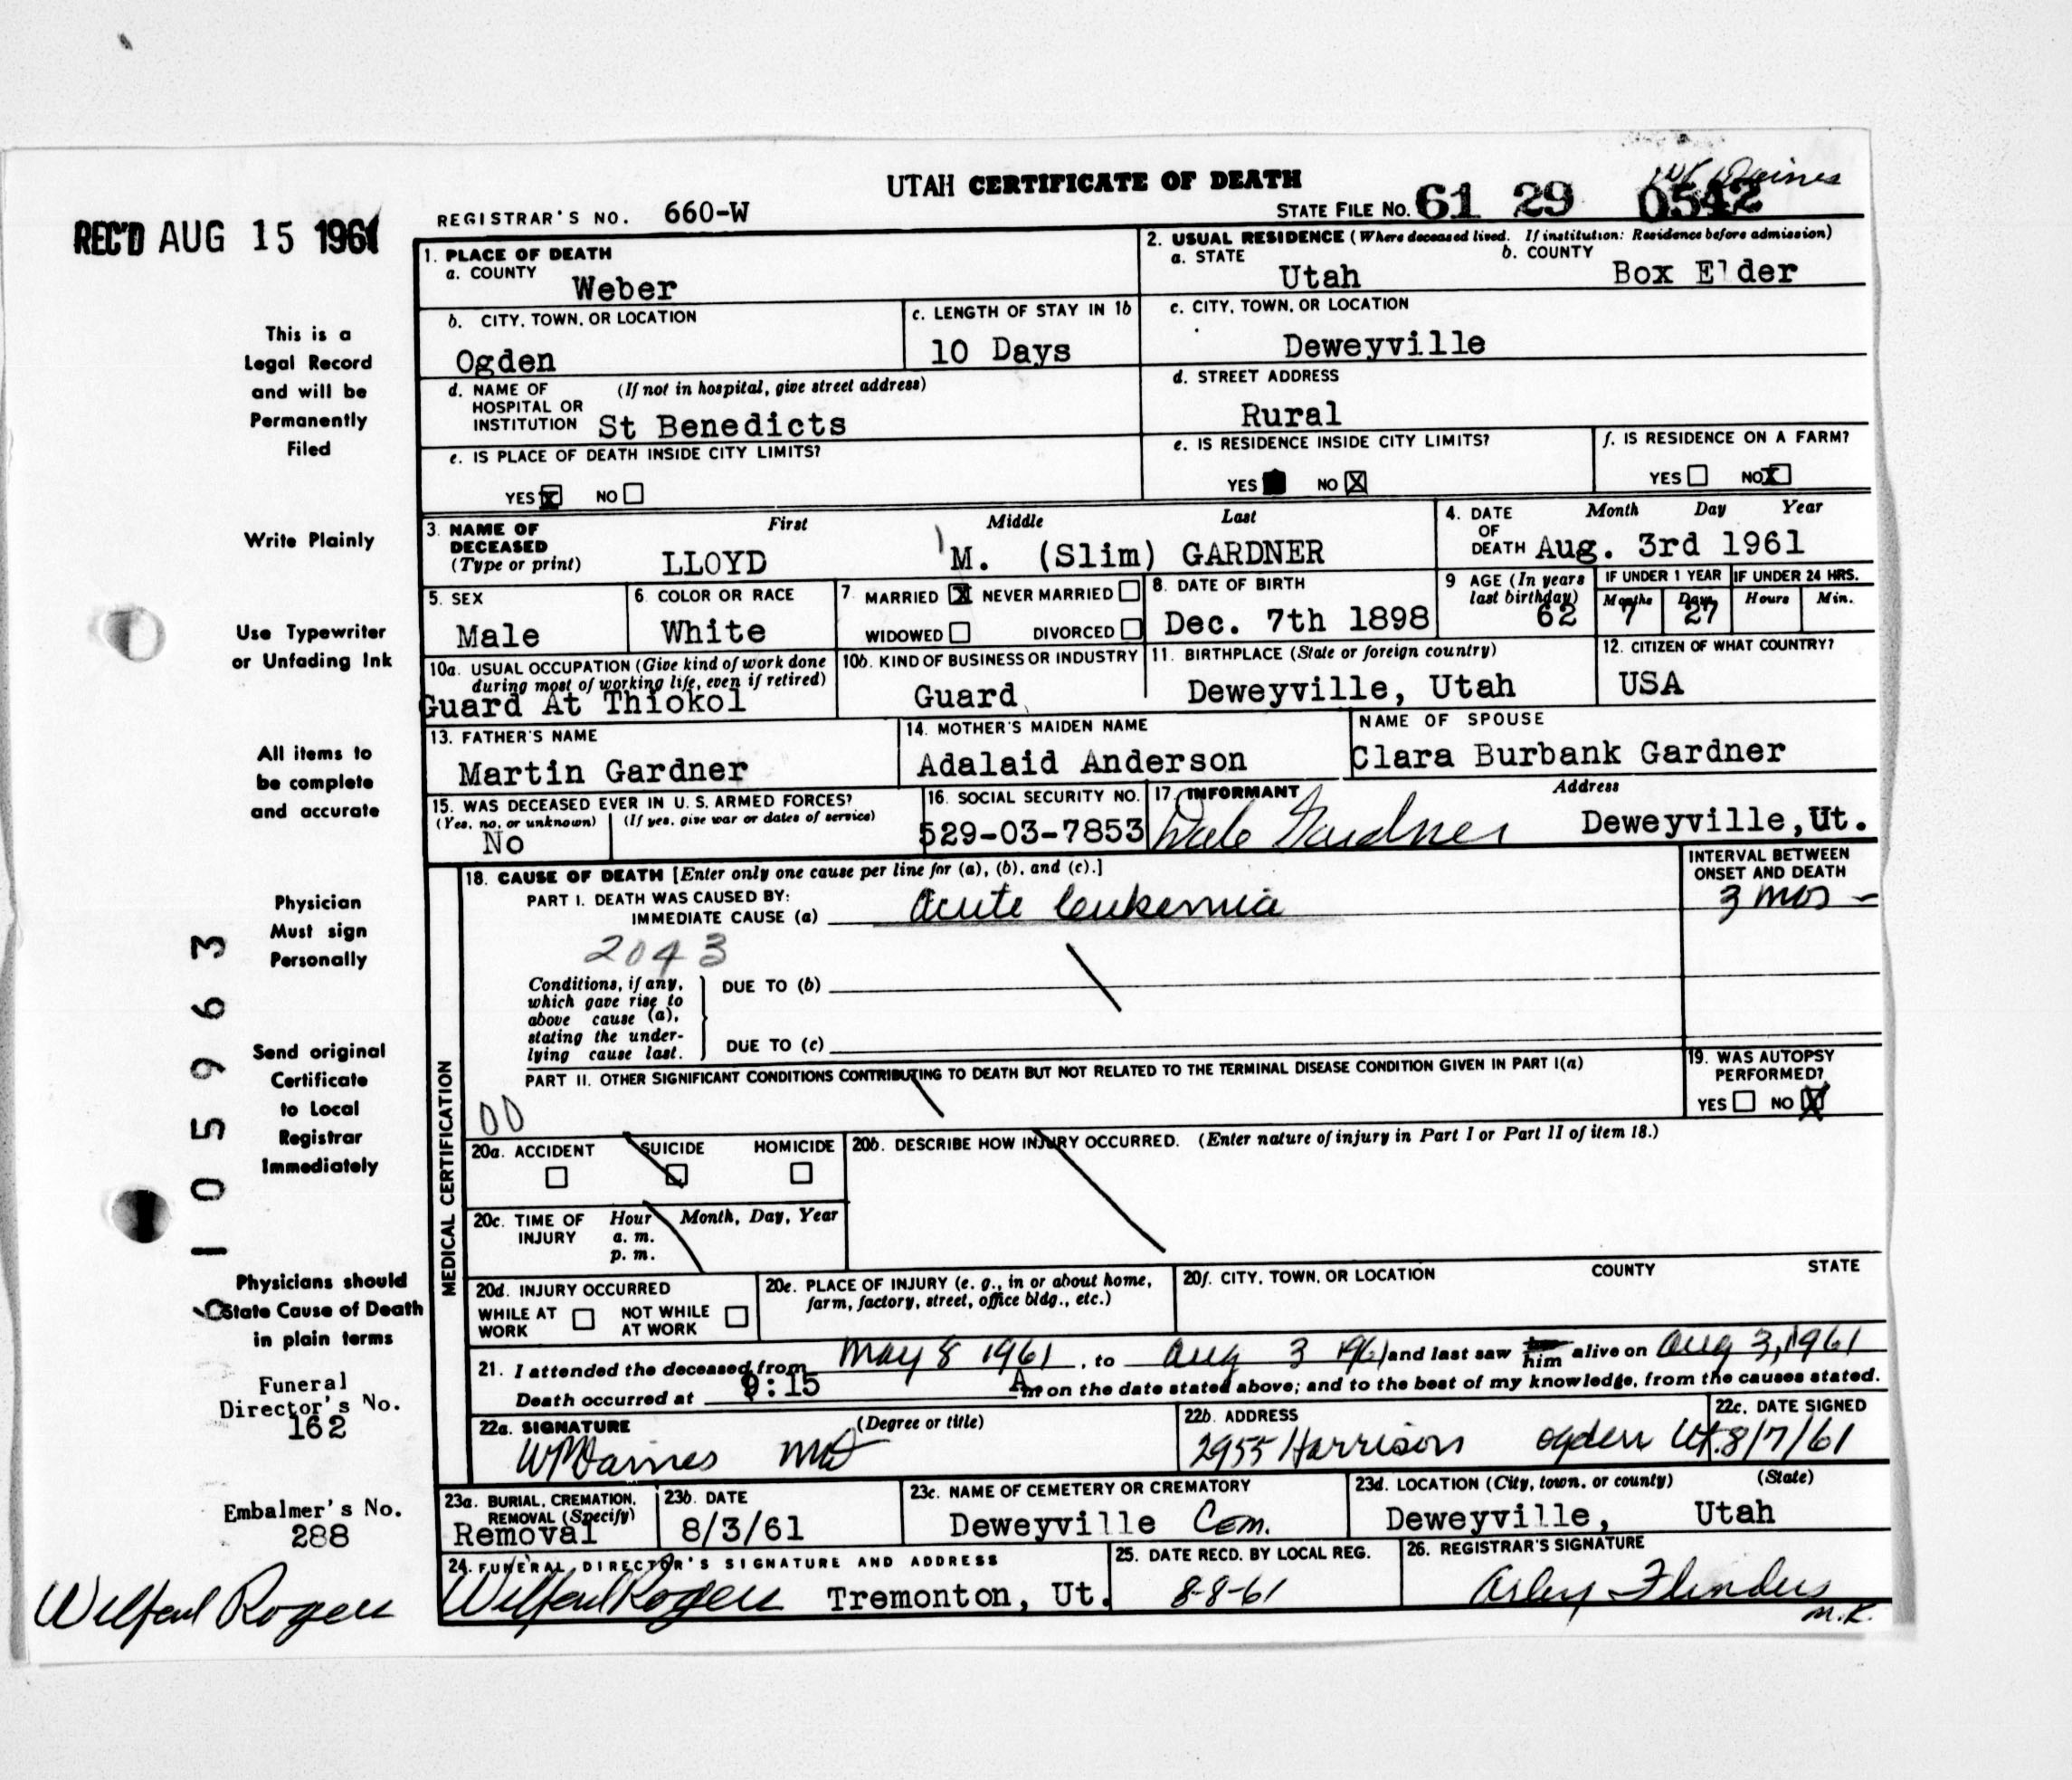 UTAH CERTIFICATE OF DEATH
REC'D AUG 15 1961
REGISTRAR'S NO. 660-W
STATE FILE NO. 61 29 0542
1. PLACE OF DEATH
a. COUNTY
Weber
2. USUAL RESIDENCE (Where deceased lived. If institution: Residence before admission)
a. STATE Utah
b. COUNTY Box Elder
b. CITY, TOWN, OR LOCATION
Ogden
c. LENGTH OF STAY IN 1b
10 Days
c. CITY, TOWN, OR LOCATION
Deweyville
d. NAME OF HOSPITAL OR INSTITUTION (If not in hospital, give street address)
St Benedicts
d. STREET ADDRESS
Rural
e. IS PLACE OF DEATH INSIDE CITY LIMITS?
YES X NO
e. IS RESIDENCE INSIDE CITY LIMITS?
YES NO X
f. IS RESIDENCE ON A FARM?
YES NO X
3. NAME OF DECEASED (Type or print)
First Middle Last
LLOYD M. (Slim) GARDNER
4. DATE OF DEATH
Month Day Year
Aug. 3rd 1961
5. SEX
Male
6. COLOR OR RACE
White
7. MARRIED X NEVER MARRIED
WIDOWED DIVORCED
8. DATE OF BIRTH
Dec. 7th 1898
9 AGE (In years last birthday)
62
IF UNDER 1 YEAR
Months Days
7 27
IF UNDER 24 HRS.
Hours Min.
10a. USUAL OCCUPATION (Give kind of work done during most of working life, even if retired)
Guard At Thiokol
10b. KIND OF BUSINESS OR INDUSTRY
Guard
11. BIRTHPLACE (State or foreign country)
Deweyville, Utah
12. CITIZEN OF WHAT COUNTRY?
USA
13. FATHER'S NAME
Martin Gardner
14. MOTHER'S MAIDEN NAME
Adalaid Anderson
NAME OF SPOUSE
Clara Burbank Gardner
15. WAS DECEASED EVER IN U. S. ARMED FORCES?
(Yes, no, or unknown) (If yes, give war or dates of service)
No
16. SOCIAL SECURITY NO.
529-03-7853
17. INFORMANT Address
Dale Gardner Deweyville, Ut.
MEDICAL CERTIFICATION
18. CAUSE OF DEATH [Enter only one cause per line for (a), (b), and (c).]
PART I. DEATH WAS CAUSED BY:
IMMEDIATE CAUSE (a) Acute leukemia
INTERVAL BETWEEN ONSET AND DEATH
3 mos -
2043
Conditions, if any, which gave rise to above cause (a), stating the underlying cause last.
DUE TO (b)
DUE TO (c)
PART II. OTHER SIGNIFICANT CONDITIONS CONTRIBUTING TO DEATH BUT NOT RELATED TO THE TERMINAL DISEASE CONDITION GIVEN IN PART I(a)
00
19. WAS AUTOPSY PERFORMED?
YES NO X
20a. ACCIDENT SUICIDE HOMICIDE
20b. DESCRIBE HOW INJURY OCCURRED. (Enter nature of injury in Part I or Part II of item 18.)
20c. TIME OF INJURY Hour Month, Day, Year
a. m.
p. m.
20d. INJURY OCCURRED
WHILE AT WORK NOT WHILE AT WORK
20e. PLACE OF INJURY (e. g., in or about home, farm, factory, street, office bldg., etc.)
20f. CITY, TOWN, OR LOCATION COUNTY STATE
21. I attended the deceased from May 8 1961, to Aug 3 1961 and last saw him alive on Aug 3, 1961
Death occurred at 9:15 A m on the date stated above; and to the best of my knowledge, from the causes stated.
22a. SIGNATURE (Degree or title)
WR Daines MD
22b. ADDRESS
2955 Harrison Ogden Ut.
22c. DATE SIGNED
8/7/61
23a. BURIAL, CREMATION, REMOVAL (Specify)
Removal
23b. DATE
8/3/61
23c. NAME OF CEMETERY OR CREMATORY
Deweyville Cem.
23d. LOCATION (City, town, or county) (State)
Deweyville, Utah
24. FUNERAL DIRECTOR'S SIGNATURE AND ADDRESS
Tremonton, Ut.
25. DATE RECD. BY LOCAL REG.
8-8-61
26. REGISTRAR'S SIGNATURE
Flinders
M.K.
This is a
Legal Record
and will be
Permanently
Filed
Write Plainly
Use Typewriter
or Unfading Ink
All items to
be complete
and accurate
Physician
Must sign
Personally
Send original
Certificate
to Local
Registrar
Immediately
Physicians should
State Cause of Death
in plain terms
Funeral
Director's No.
162
Embalmer's No.
288
6105963